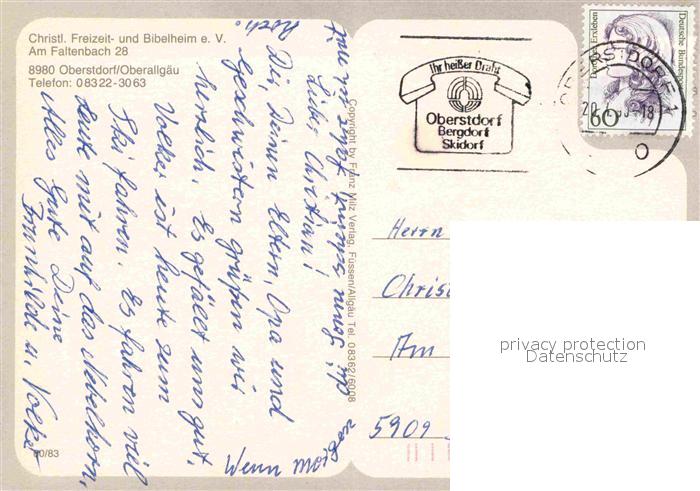 Christl. Freizeit- und Bibelheim e. V.
Am Faltenbach 28
8980 Oberstdorf/Oberallgäu
Telefon: 08322-3063
Lieber Christian!
Dir, Deinen Eltern, Opa und
Geschwistern grüßen wir
herzlich. Es gefällt uns gut.
Volker ist heute zum
Skifahren. Es fahren viel
Leute mit auf das Nebelhorn.
Alles Gute Deine
Frunhilde u. Volker
Wenn
die Sonne scheint
hoch.
80/83
Copyright by Franz Milz Verlag, Füssen/Allgäu Tel. 08362/6008
Ihr heißer Draht
Oberstdorf
Bergdorf
Skidorf
OBERSTDORF 1
20
-18
Deutsche Bundespost
60
Herrn
Christ
Am
5909
privacy protection
Datenschutz